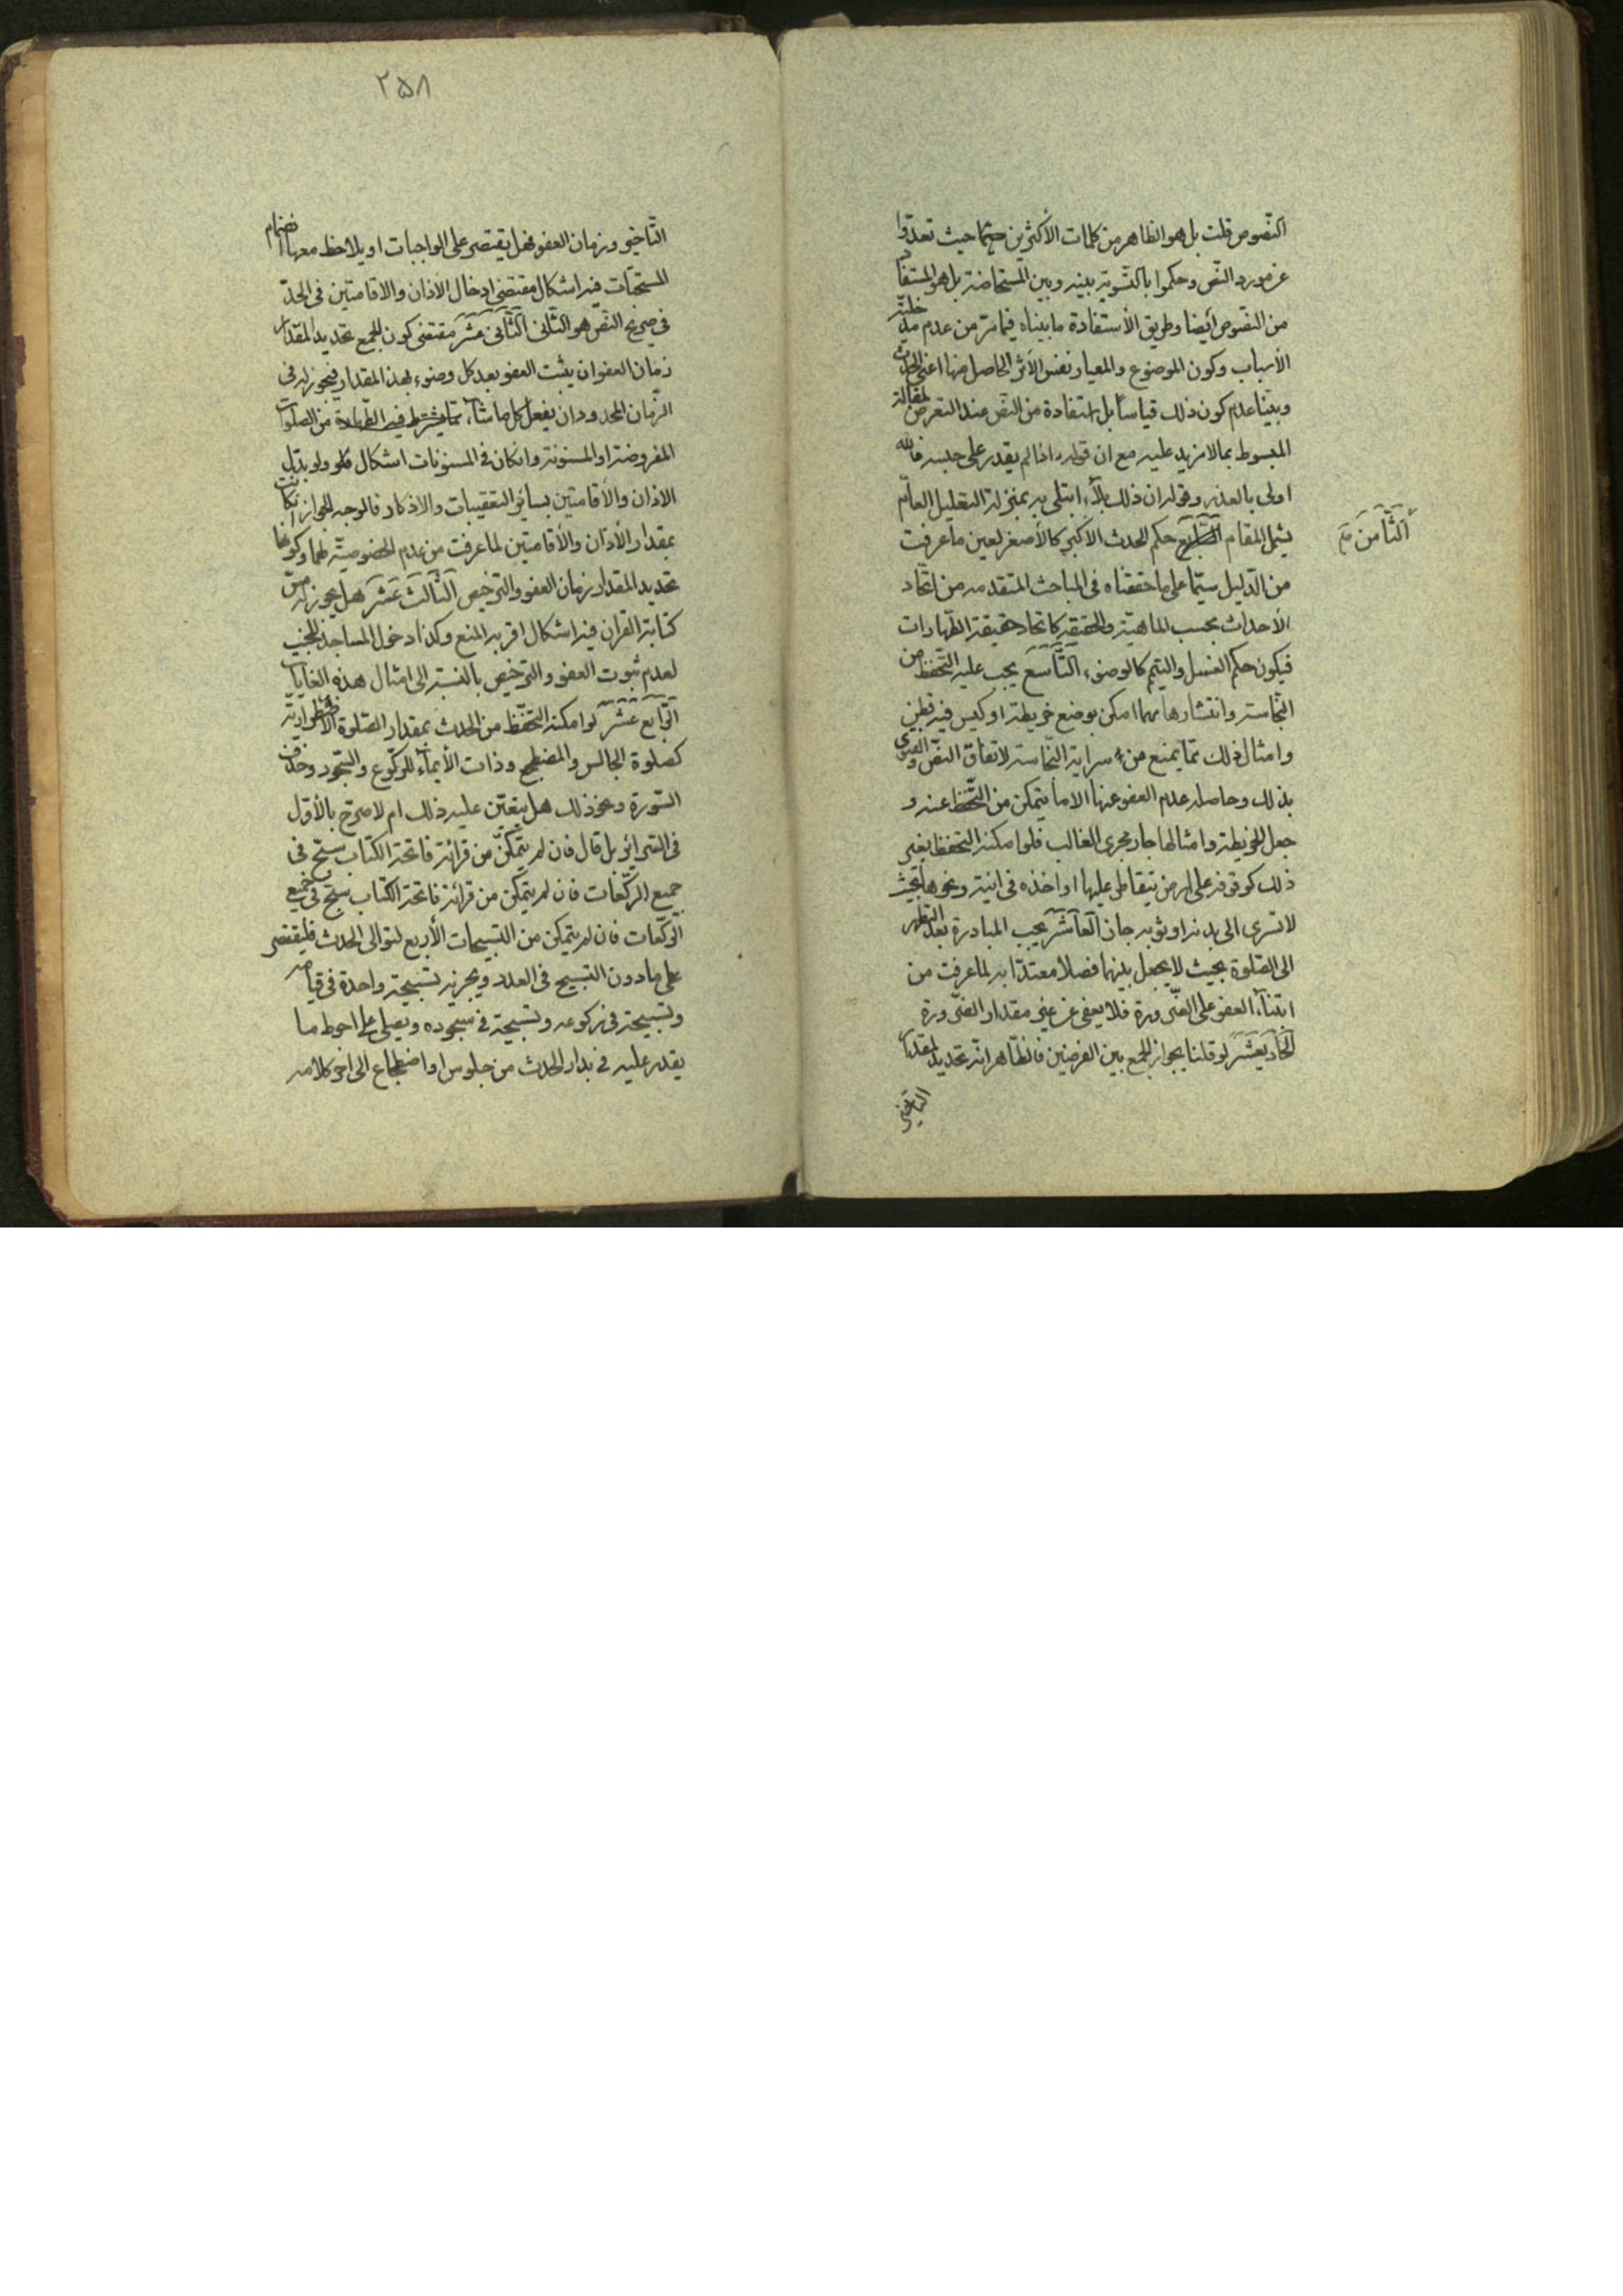 النّصوص قلت بل هو الظاهر من كلمات الأكثرين حتما حيث تعدّوا
عن مورد النّصّ وحكموا بالتّسوية بينه وبين المستحاضة بل هو المستفاد
من النّصوص أيضا وطريق الأستفادة ما بيناه فيما مرّ من عدم مدخليّة
الأسباب وكون الموضوع والمعيار نفس الأثر الحاصل منها اعني الحدث
وبيّنا عدم كون ذلك قياساً بل استفادة من النّصّ عند التعرض لمقالة
المبسوط بما لا مزيد عليه مع ان قوله اذا لم يقدر على حبسه فالله
اولى بالعذر وقوله ان ذلك بلآء ابتلى به بمنزلة التعليل العامّ
يشمل المقام حكم الحدث الاكبر كالأصغر لعين ما عرفت
الثّامن
من الدّليل سيّما على ما حققناه في المباحث المتقدمه من اتّحاد
الأحداث بحسب الماهيّة والحقيقة كاتحاد حقيقة الطّهارات
فيكون حكم الغسل والتيمّم كالوضوء التّاسع يجب عليه التّحفظ من
النّجاسة وانتشارها مهما امكن بوضع خريطة او كيس فيه قطن
وامثال ذلك ممّا يمنع من سراية النّجاسة لاتفاق النصّ والفتوى
بذلك وحاصله عدم العفو عنها الا ما يتمكن من التّحفظ عنه و
جعل الخريطة وامثالها جار مجرى الغالب فلو امكنه التحفظ بغير
ذلك كوقوفه على ارض يتقاطر عليها او اخذه في انية ونحوها بحيث
لا تسرى الى بدنه او ثوبه جاز العاشر يجب المبادرة بعد التطهر
الى الصّلوة بحيث لا يجعل بينهما فصلا معتدّا به لما عرفت من
ابتنآء العفو على الضّرورة فلا يعفى عن غير مقدار الضّرورة
الحاديعشر لو قلنا بجواز الجمع بين الفرضين فالظّاهر انّه تحديد لمقدار
التاخير
٢٥٨
التّاخير وزمان العفو فهل يقتصر على الواجبات او يلاحظ معها انضمام
المستحبّات فيه اشكال مقتضى ادخال الأذان والاقامتين في الحدّ
في صريح النّصّ هو الثّانى الثّانى عشر مقتضى كون الجمع تحديد المقدار
زمان العفو ان يثبت العفو بعد كل وضوء بهذا المقدار فيجوز له في
الزّمان المحدود ان يفعل كل ما شآء ممّا يشترط فيه الطّهارة من الصلوات
المفروضة او المسنونة وانكان في المسنونات اشكال فلو ولو بدّل
الاذان والأقامتين بسائر التعقيبات والاذكار فالوجه الجواز انكانت
بمقدار الأذان والأقامتين لما عرفت من عدم الخصوصيّة لهما وكونها
تحديد المقدار زمان العفو والترخيص الثالث عشر هل يجوز له مسّ
كتابة القران فيه اشكال اقربه المنع وكذا دخول المساجد للجنب
لعدم ثبوت العفو والترخيص بالنسبة الى امثال هذه الغايات
الرّابع عشر لو امكنه التحفّظ من الحدث بمقدار الصّلوة الأضطرارية
كصلوة الجالس والمضطجع وذات الأيمآء للرّكوع والسّجود وحذف
السّورة ونحو ذلك هل يتعيّن عليه ذلك ام لا صرّح بالأوّل
في السّرائر بل قال فان لم يتمكّن من قرائة فاتحة الكتاب سبّح في
جميع الرّكعات فان لم يتمكّن من قرائة فاتحة الكتاب سبّح في جميع
الرّكعات فان لم يتمكن من التسبيحات الأربع لتوالى الحدث فليقتصر
على ما دون التسبيح في العدد ويجزيه تسبيحة واحدة في قيامه
وتسبيحة في ركوعه وتسبيحة في سجوده ويصلى على احوط ما
يقدر عليه في بدار الحدث من جلوس او اضطجاع الى اخر كلامه